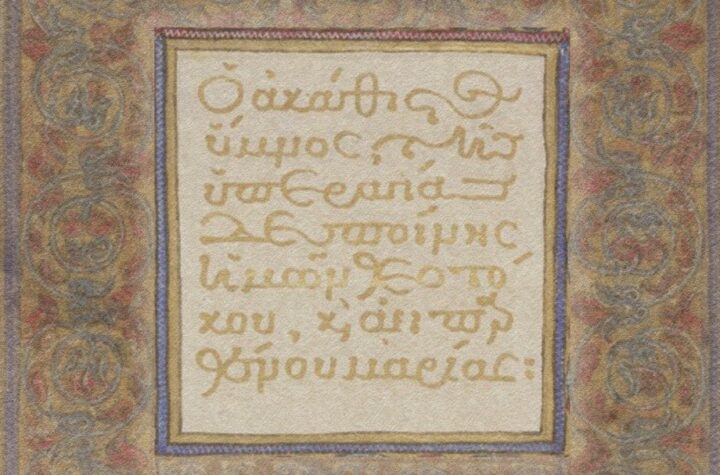 Ὁ ἀκάθιστος
ὕμνος, τῆς
ὑπεραγίας
δεσποίνης
ἡμῶν θεοτό
κου, κ, ἀειπαρ
θένου μαρίας: